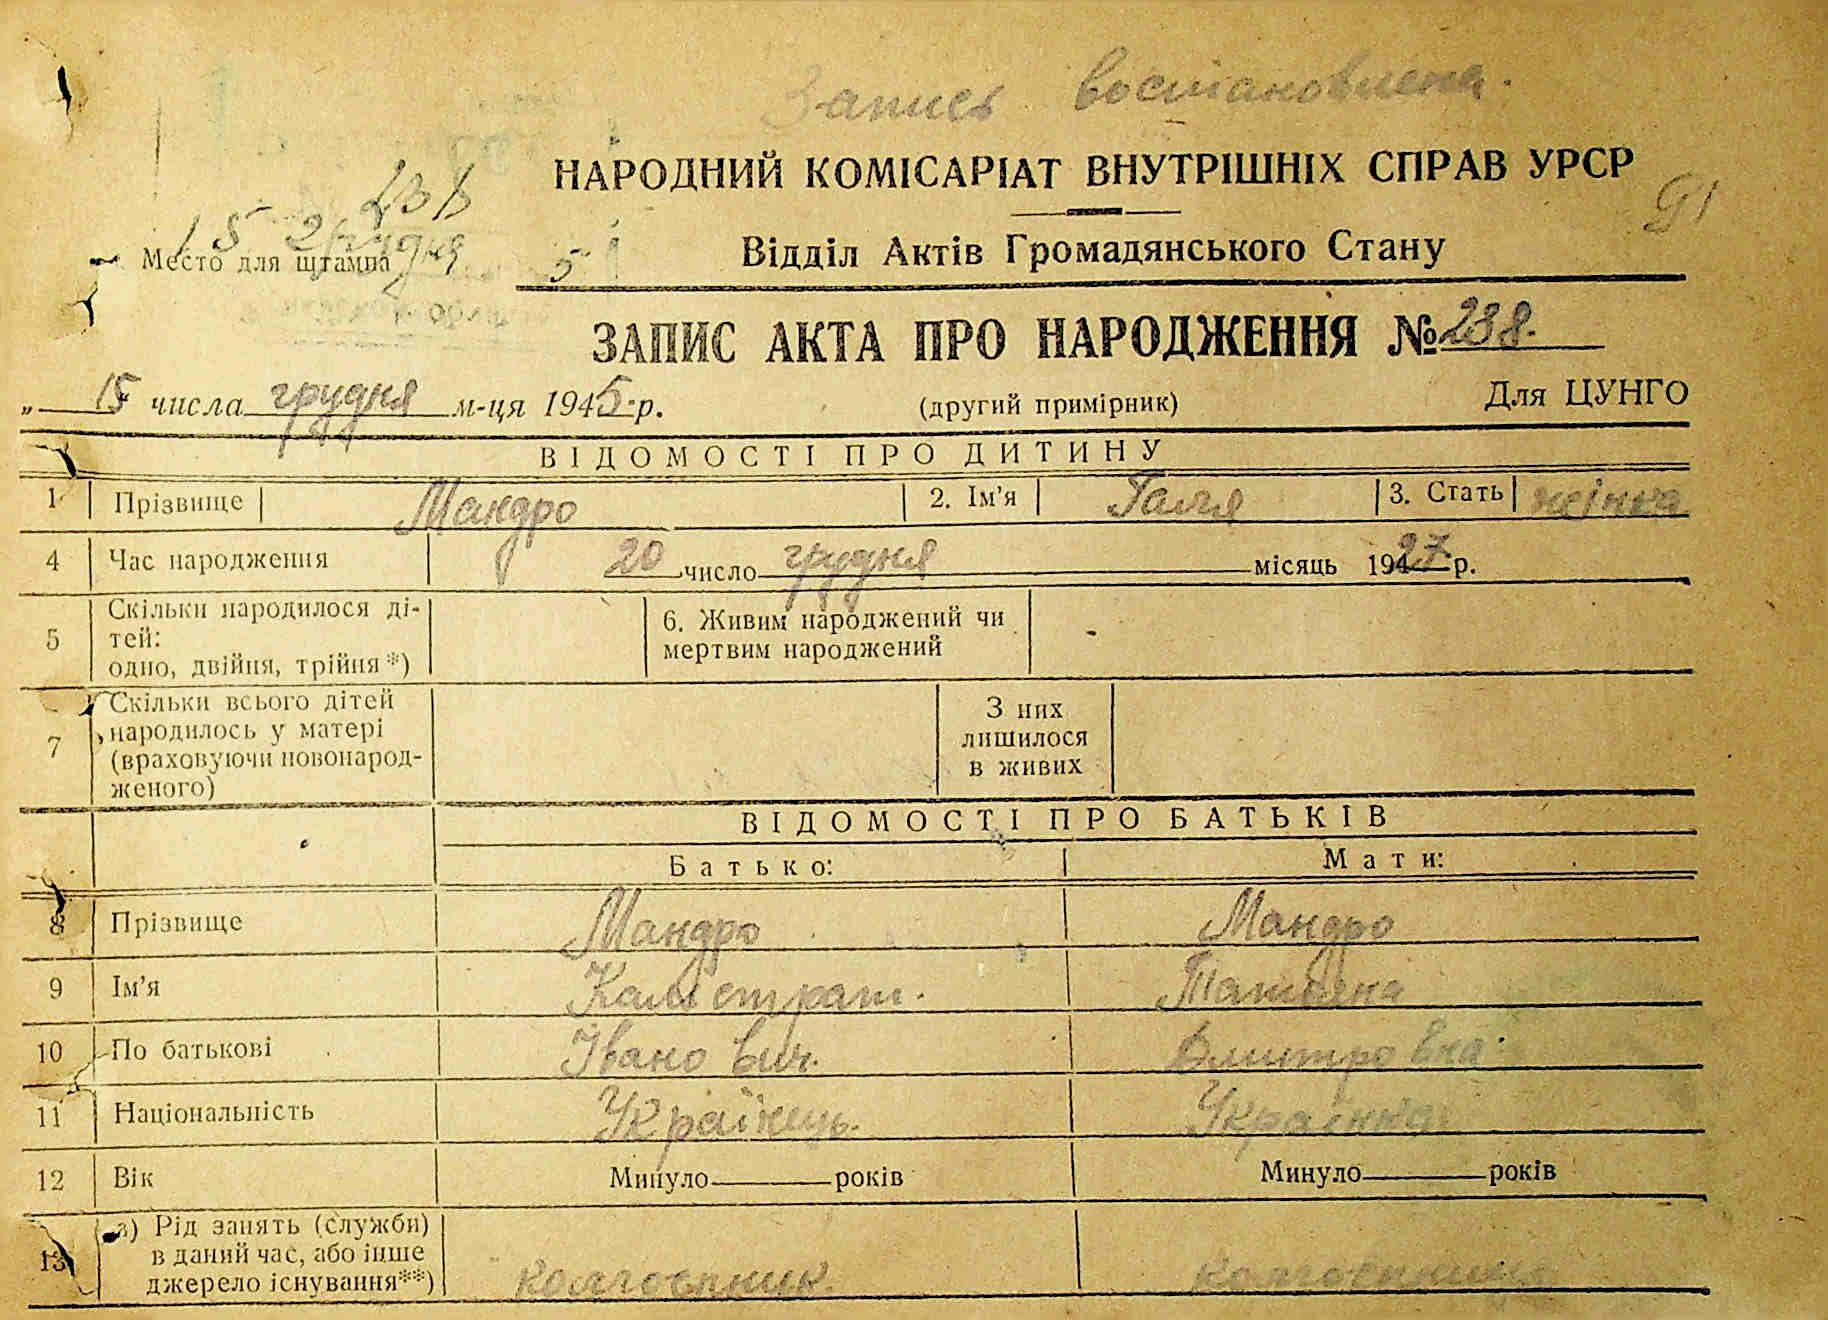 Запись востановлена.
НАРОДНИЙ КОМІСАРІАТ ВНУТРІШНІХ СПРАВ УРСР
91
238
15 грудня 5
Место для штампа
Відділ Актів Громадянського Стану
ЗАПИС АКТА ПРО НАРОДЖЕННЯ № 238.
„ 15 числа грудня м-ця 1945 р.
(другий примірник)
Для ЦУНГО
ВІДОМОСТІ ПРО ДИТИНУ
1 Прізвище Мандро 2. Ім'я Галя 3. Стать жінка
4 Час народження 20 число грудня місяць 1927 р.
5 Скільки народилося ді-
тей:
одно, двійня, трійня*)
6. Живим народжений чи
мертвим народжений -
7 Скільки всього дітей
народилось у матері
(враховуючи новонарод-
женого)
З них
лишилося
в живих
ВІДОМОСТІ ПРО БАТЬКІВ
Батько: Мати:
8 Прізвище Мандро Мандро
9 Ім'я Калістрат. Татьяна
10 По батькові Іванович. Дмитровна.
11 Національність Українець. Українка
12 Вік Минуло років Минуло років
13 а) Рід занять (служби)
в даний час, або інше
джерело існування**) колгоспник. колгоспниця